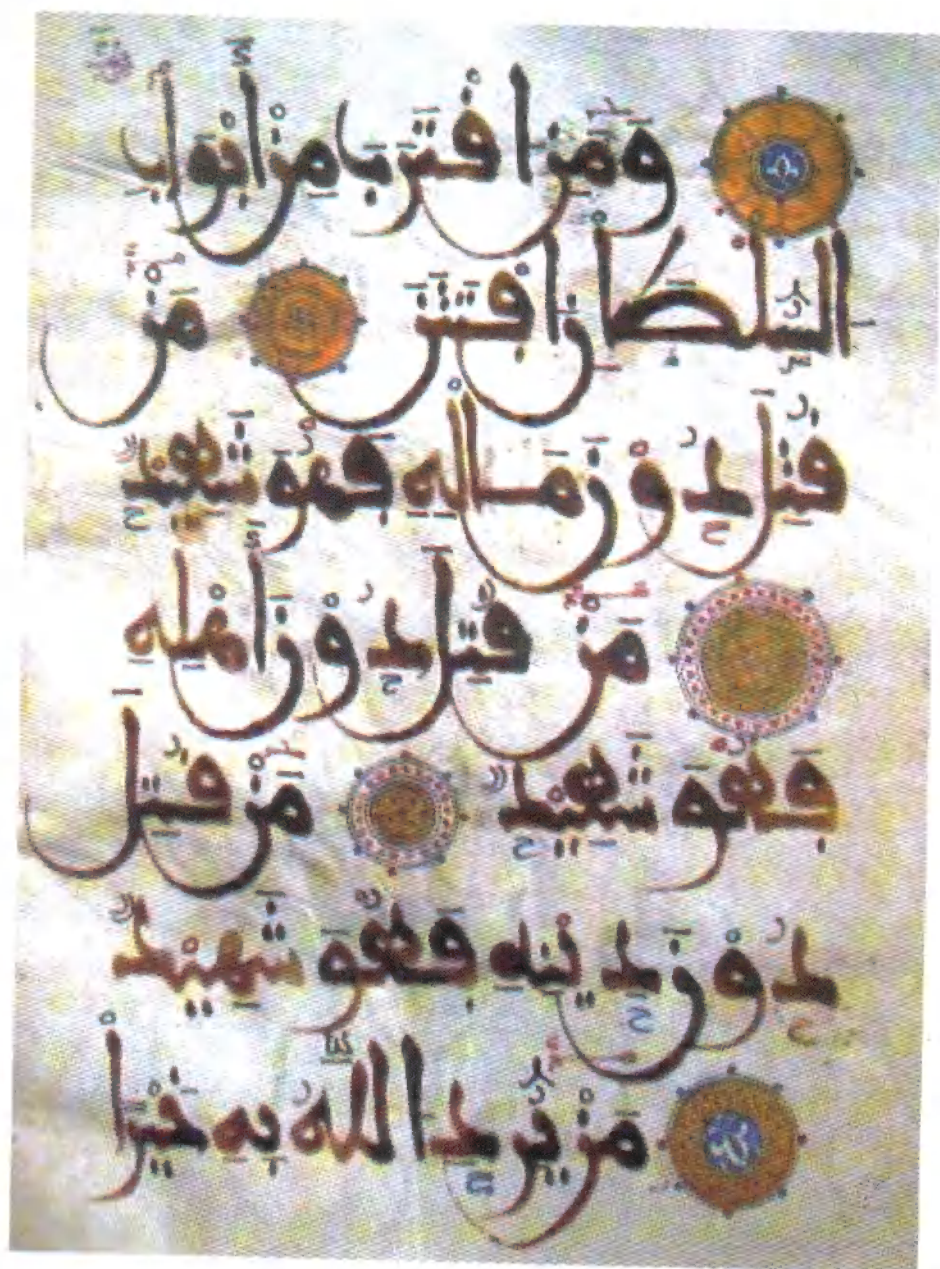 وَمَنِ افْتَرَبَا مِنْ أَبْوَابِ
السُّلْطَانِ افْتَتَنَ مَنْ
قُتِلَ دُونَ مَالِهِ فَهُوَ شَهِيدٌ
مَنْ قُتِلَ دُونَ أَهْلِهِ
فَهُوَ شَهِيدٌ مَنْ قُتِلَ
دُونَ دِينِهِ فَهُوَ شَهِيدٌ
مَنْ يُرِدِ اللَّهُ بِهِ خَيْرًا